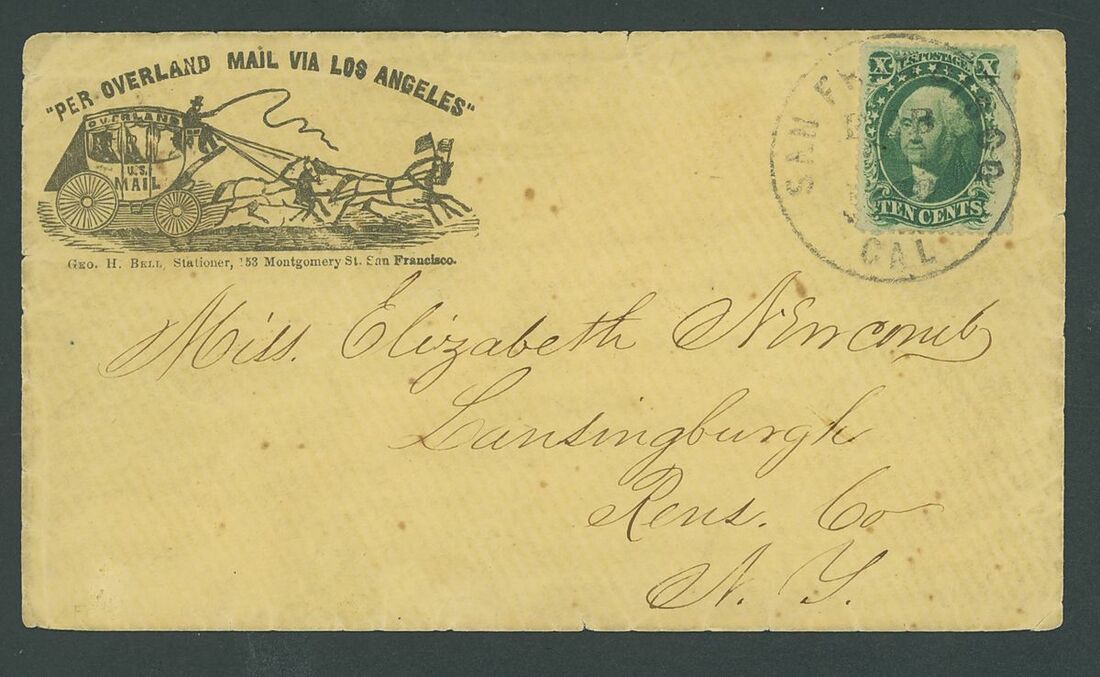 "PER OVERLAND MAIL VIA LOS ANGELES"
OVERLAND
U.S.
MAIL
GEO. H. BELL, Stationer, 153 Montgomery St. San Francisco.
X U.S. POSTAGE X
TEN CENTS
SAN FRANCISCO
CAL
Miss. Elizabeth Newcomb
Lansingburgh
Rens. Co
N. Y.